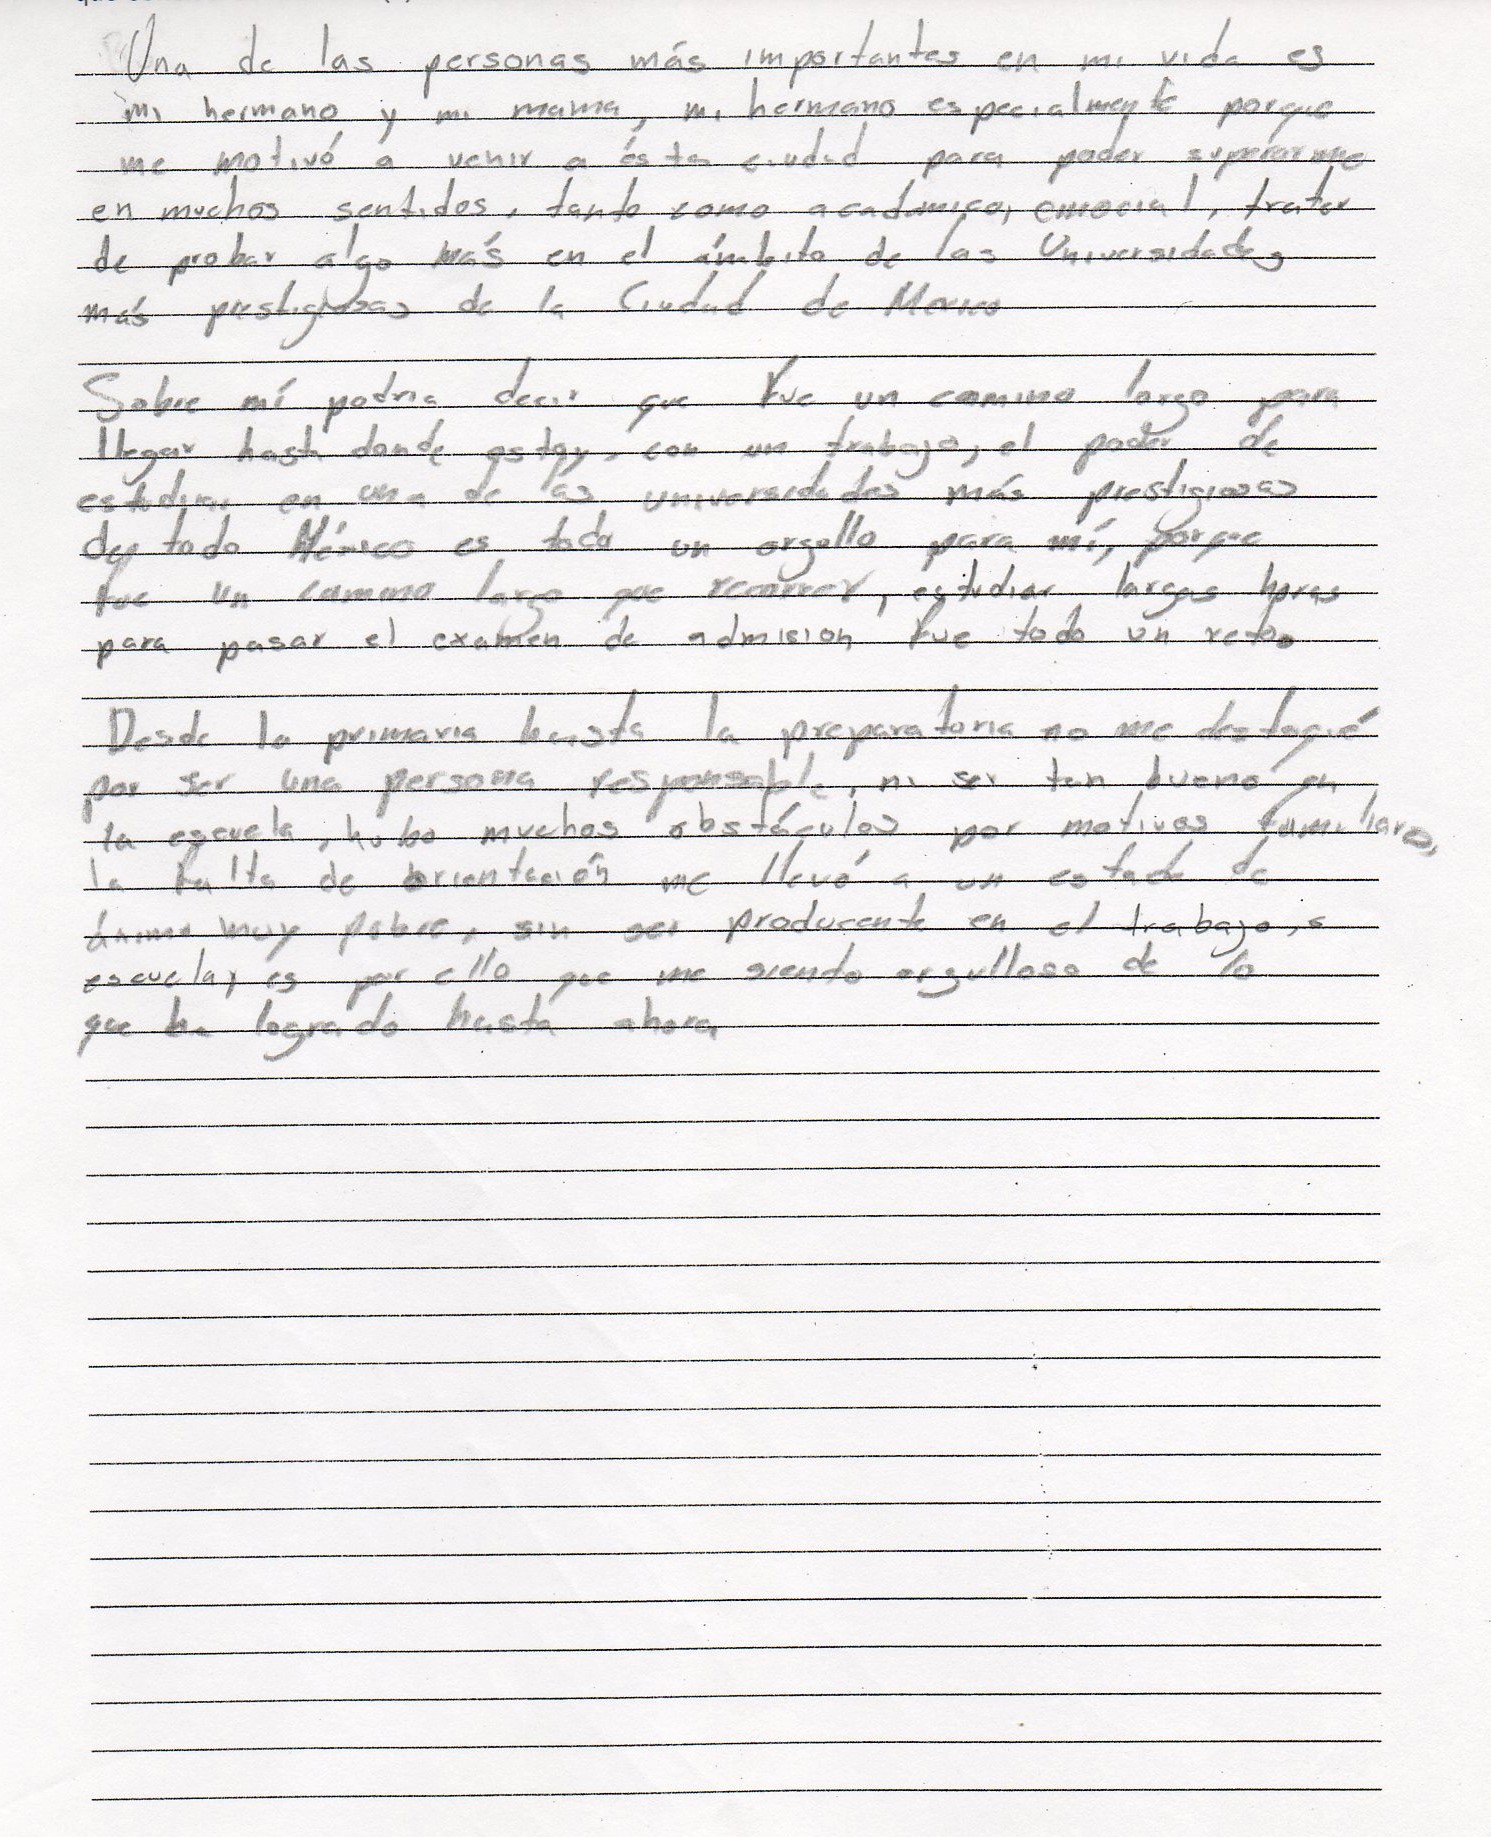 Una de las personas más importantes en mi vida es
mi hermano y mi mama, mi hermano especialmente porque
me motivó a venir a ésta ciudad para poder superarme
en muchos sentidos, tanto como academico, emocial, tratar
de probar algo más en el ámbito de las Universidades
más prestigiosas de la Ciudad de Mexico
Sobre mí podria decir que fue un camino largo para
llegar hasta donde estoy, con un trabajo, el poder de
estudiar en una de las universidades más prestigiosas
de todo México es todo un orgullo para mí, porque
fue un camino largo que recorrer, estudiar largas horas
para pasar el examen de admision fue todo un reto.
Desde la primaria hasta la preparatoria no me destaqué
por ser una persona responsable, ni ser tan bueno en
la escuela, hubo muchos obstáculos por motivos familiares,
la falta de orientación me llevó a un estado de
ánimo muy pobre, sin ser producente en el trabajo, o
escuela, es por ello que me siendo orgulloso de lo
que he logrado hasta ahora